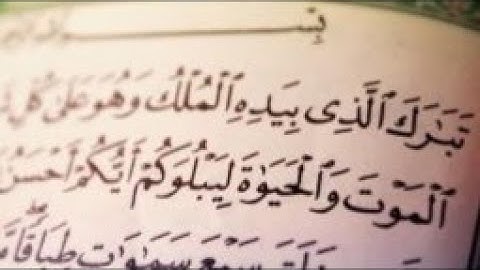 بِسْـــــــمِ
تَبَـٰرَكَ ٱلَّذِى بِيَدِهِ ٱلْمُلْكُ وَهُوَ عَلَىٰ كُلِّ
ٱلْمَوْتَ وَٱلْحَيَوٰةَ لِيَبْلُوَكُمْ أَيُّكُمْ أَحْسَنُ
سَبْعَ سَمَـٰوَٰتٍ طِبَاقًا